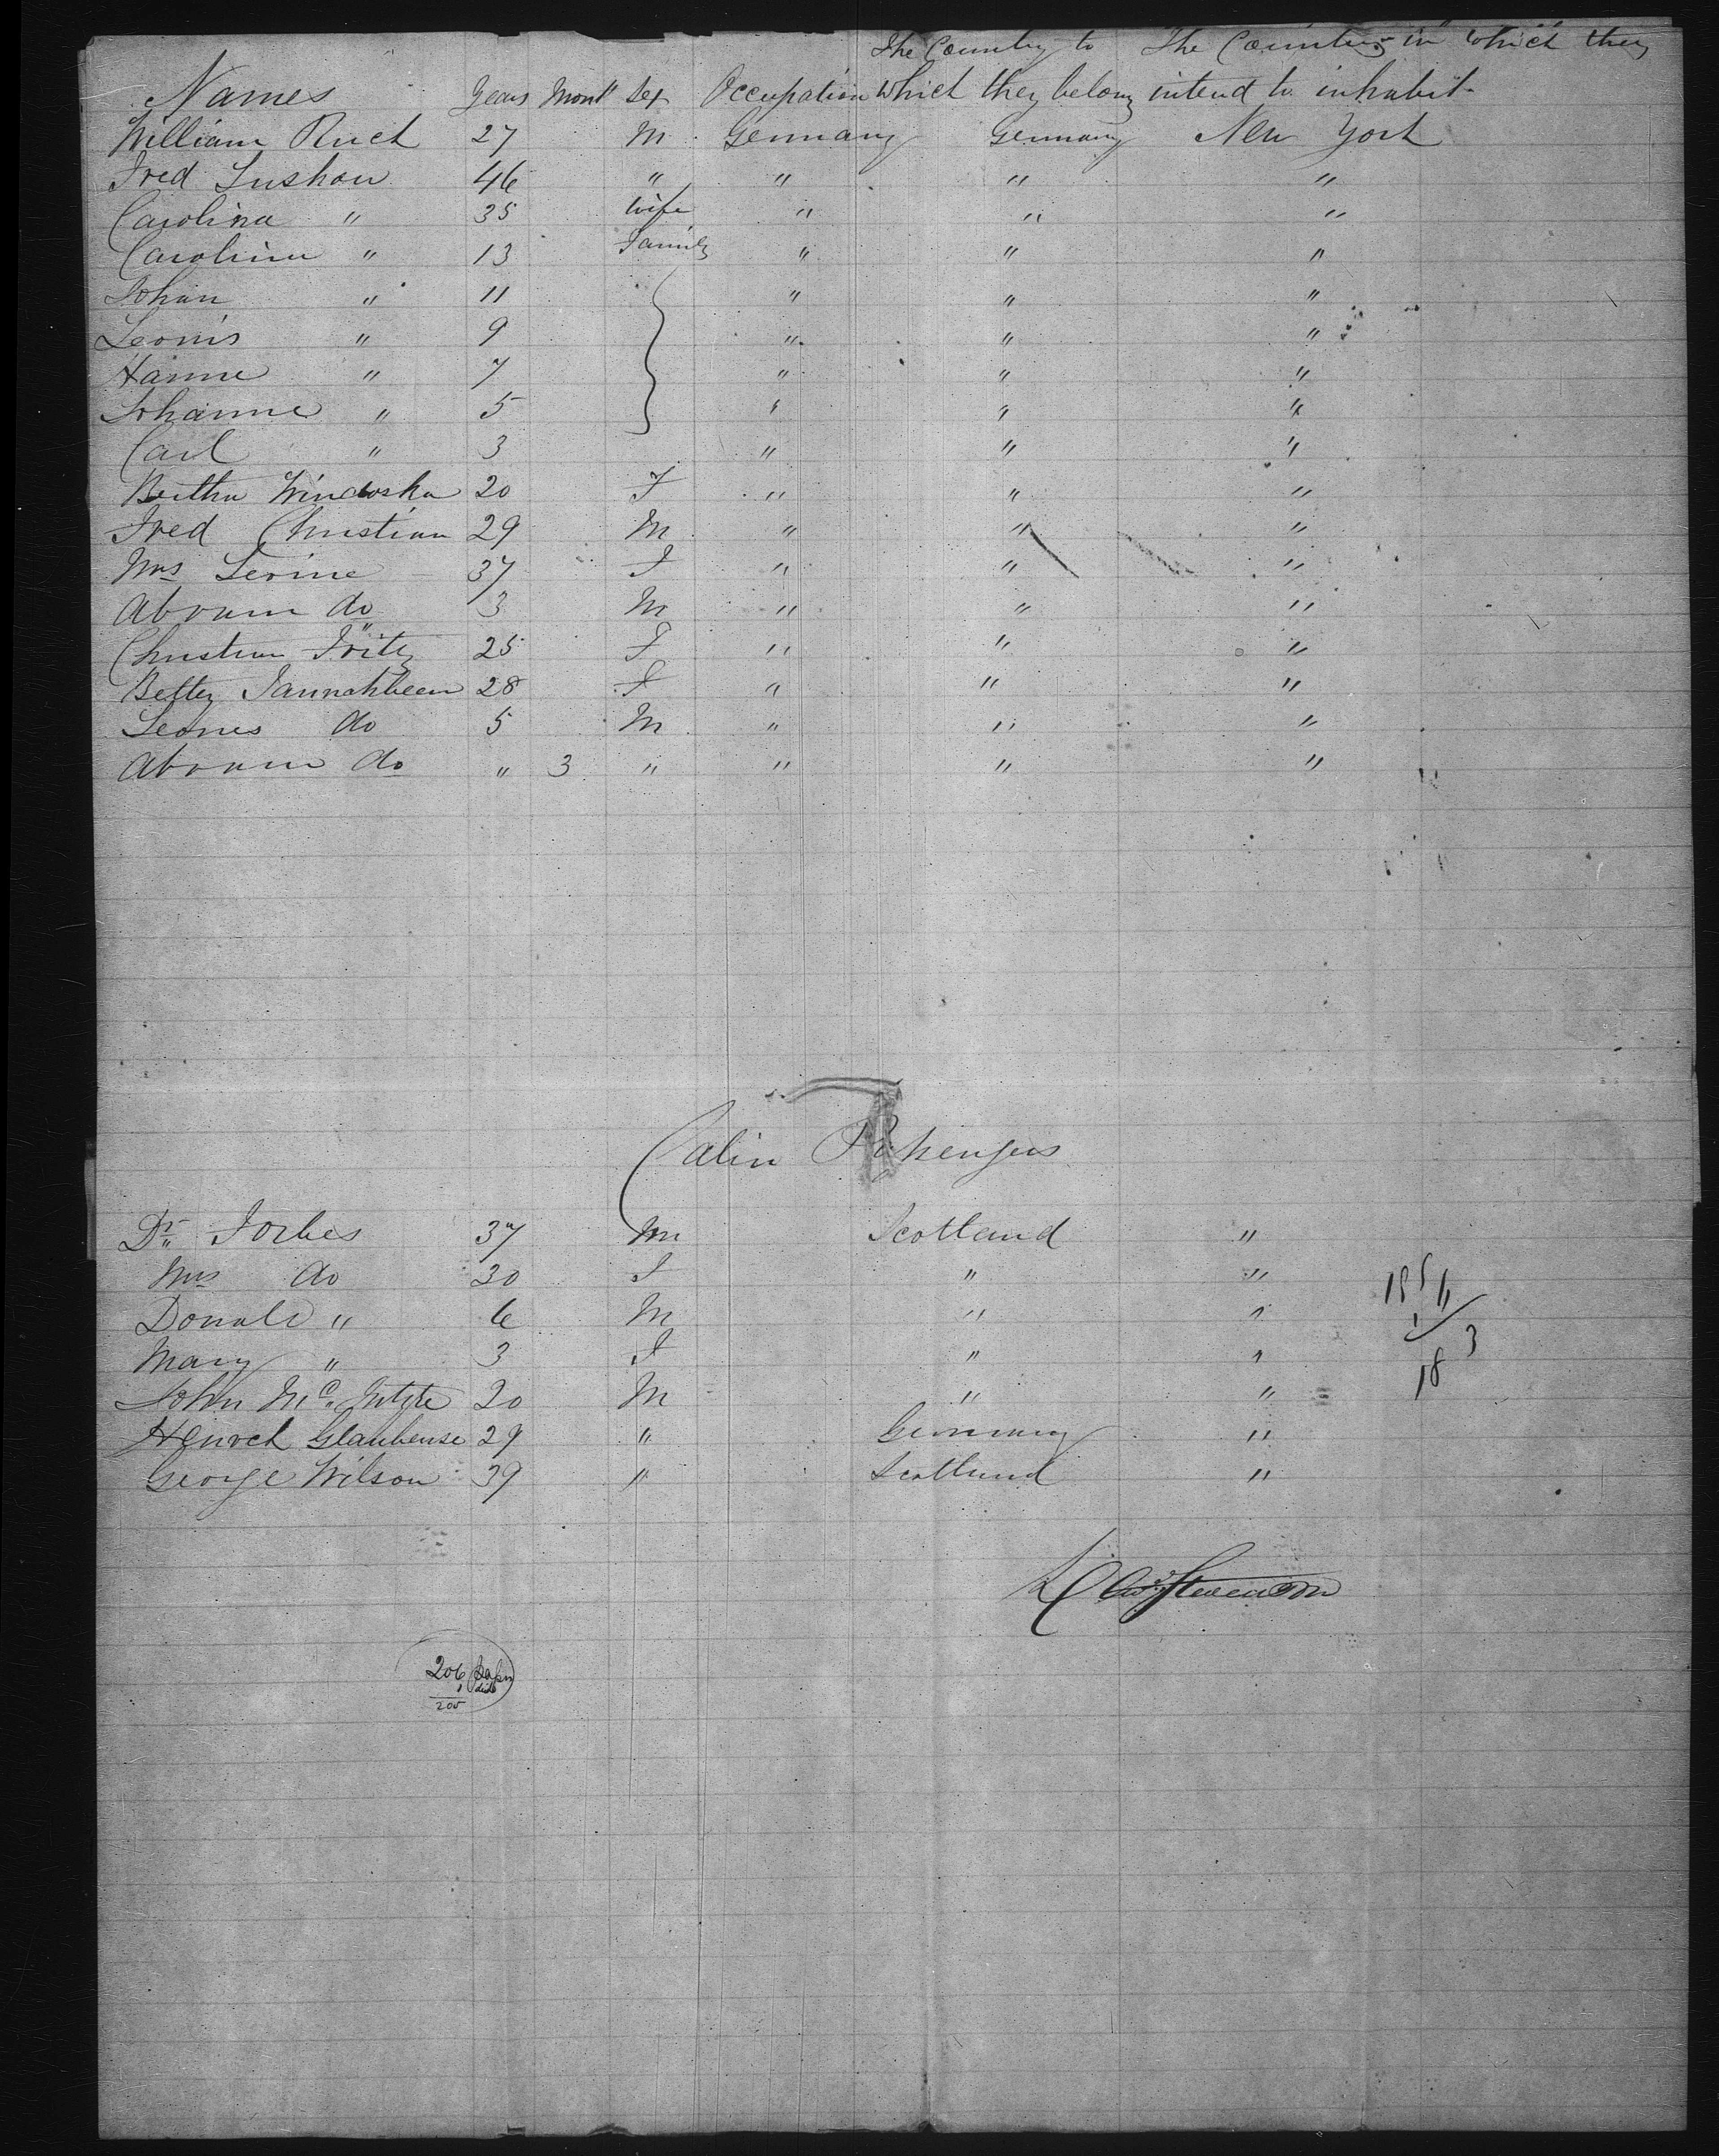 The Country to The Country in which they
Names Years Mont Sex Occupation which they belong intend to inhabit
William Ruch 27 M Germany Germany New York
Fred Lushow 46 " " " "
Carolina " 35 Wife " " "
Carolina " 13 Family " " "
Johan " 11 " " "
Leonis " 9 " " "
Hanne " 7 " " "
Johanne " 5 " " "
Carl " 3 " " "
Bertha 20 F " " "
Fred Christian 29 M " " "
Mrs Levine 37 F " " "
Abram do 3 M " " "
Christian Fritz 25 F " " "
Bettey 28 F " " "
Leones do 5 M " " "
Abram do " 3 " " " "
Cabin Passengers
Dr Forbes 37 M Scotland "
Mrs do 30 F " "
Donald " 6 M " "
Mary " 3 F " "
John Mc Intyre 20 M " "
Henrch Glaubense 29 " Germany "
George Wilson 39 " Scotland "
Stevenson
206
1
205